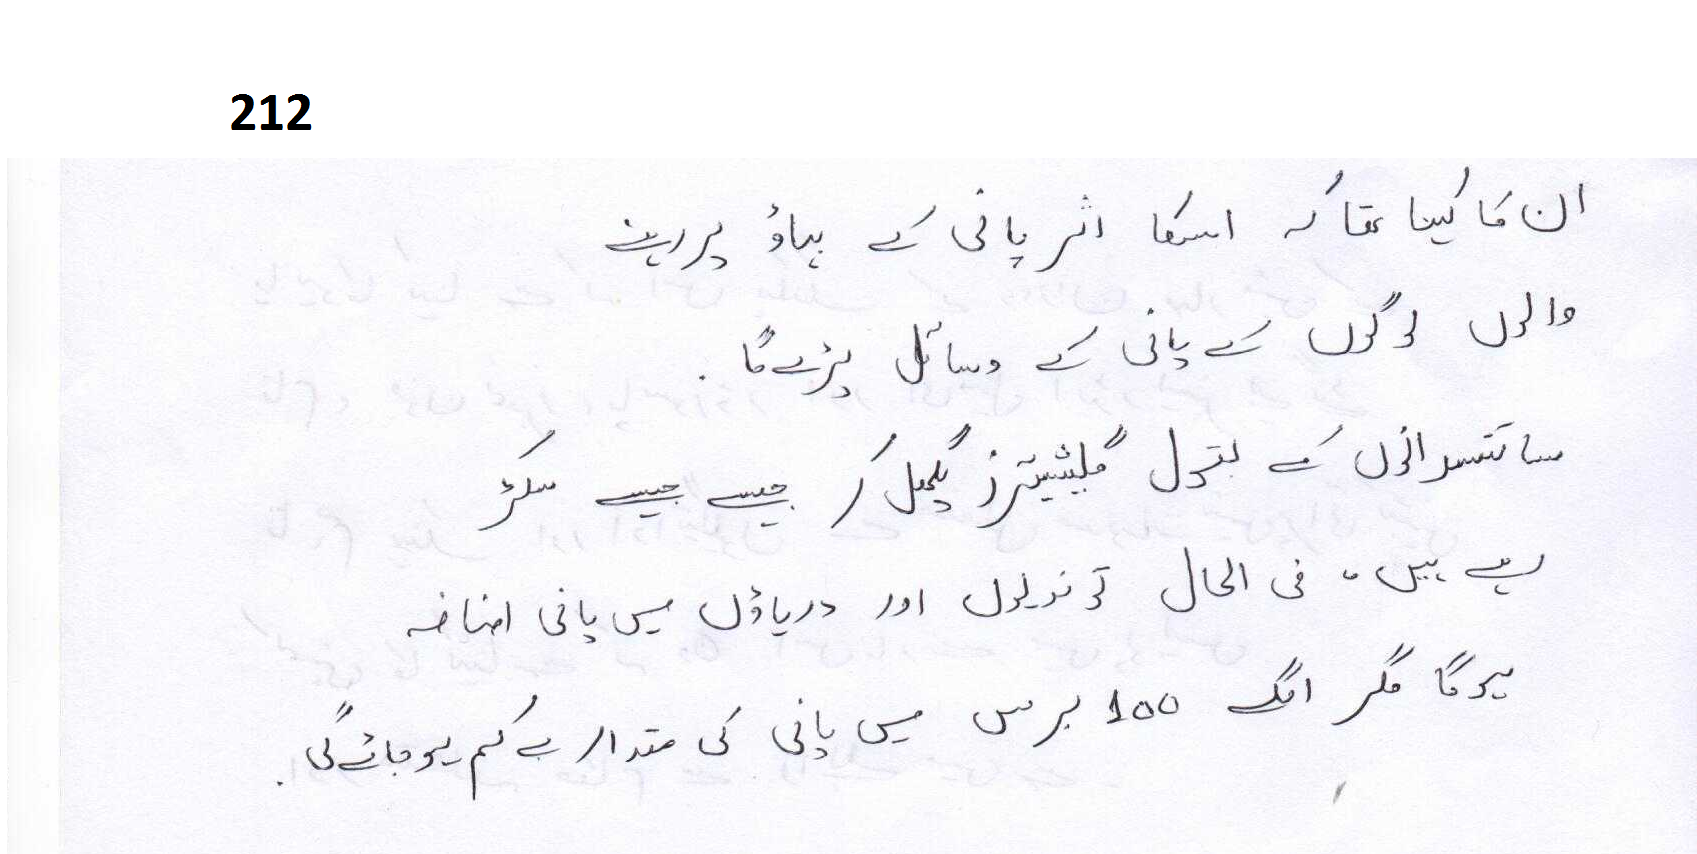 212
ان کا کہنا تھا کہ اسکا اثر پانی کے بہاؤ پر رہنے
والوں لوگوں کے پانی کے وسائل پڑے گا .
سائنسدانوں کے بقول گلیشیئرز پگھل کر جیسے جیسے سکڑ
رہے ہیں، فی الحال تو ندیوں اور دریاؤں میں پانی اضافہ
ہوگا مگر اگلے 100 برس میں پانی کی مقدار بے کم ہو جائے گی .